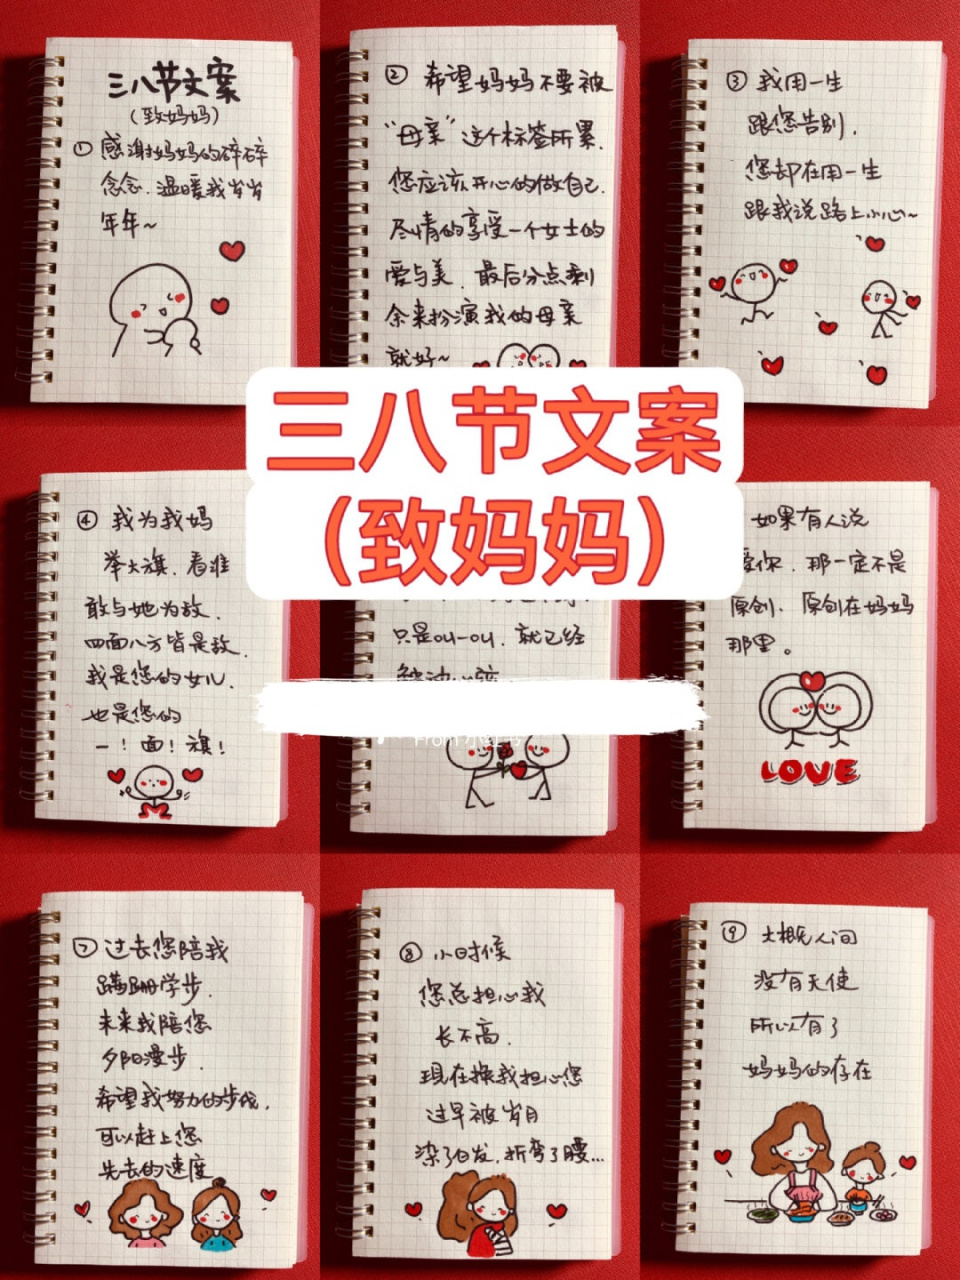 三八节文案
（致妈妈）
① 感谢妈妈的碎碎
念念.温暖我岁岁
年年~
② 希望妈妈不要被
“母亲”这个标签所累.
您应该开心的做自己.
尽情的享受一个女士的
爱与美.最后分点剩
余来扮演我的母亲
就好~
③ 我用一生
跟您告别.
您却在用一生
跟我说路上小心~
三八节文案
（致妈妈）
④ 我为我妈
举大旗.看谁
敢与她为敌.
四面八方皆是敌.
我是您的女儿.
也是您的
一！面！旗！
只是
就已经
From 小红书
如果有人说
爱你.那一定不是
原创.原创在妈妈
那里。
LOVE
⑦ 过去您陪我
蹒跚学步.
未来我陪您
夕阳漫步.
希望我努力的步伐.
可以赶上您
失去的速度
⑧ 小时候
您总担心我
长不高.
现在换我担心您
过早被岁月
染了白发.折弯了腰...
⑨ 大概人间
没有天使
所以有了
妈妈的存在